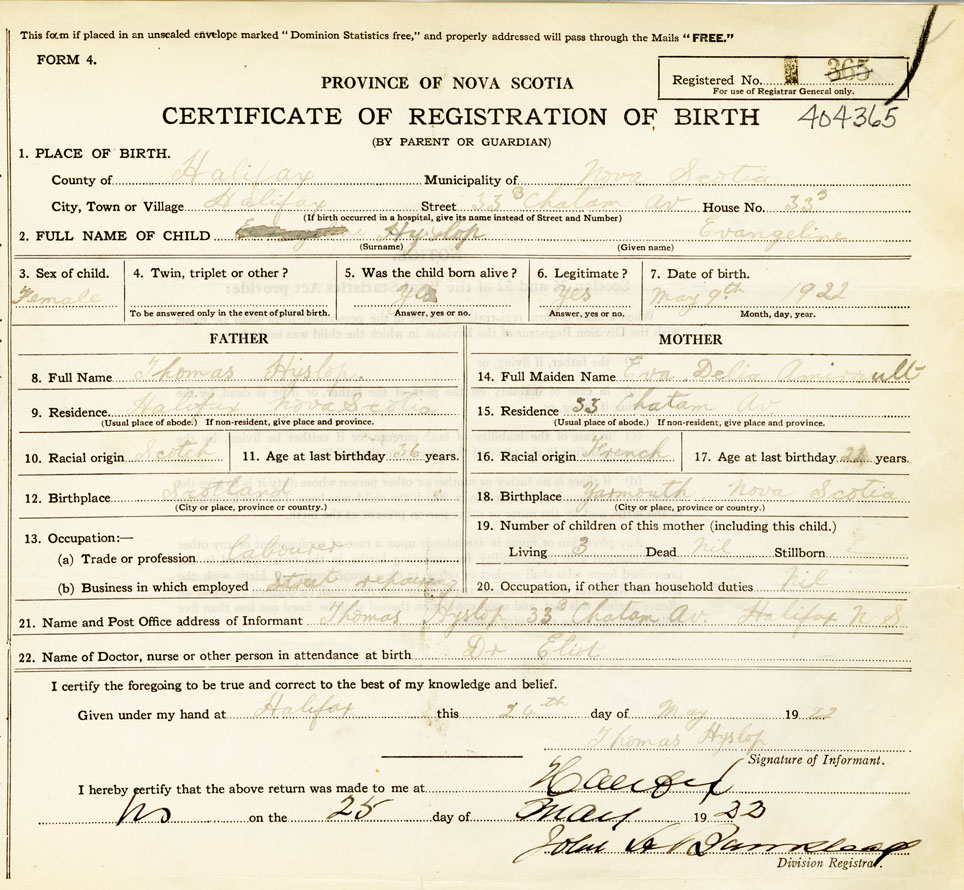 This form if placed in an unsealed envelope marked "Dominion Statistics free," and properly addressed will pass through the Mails "FREE."
FORM 4.
Registered No. 365
For use of Registrar General only.
PROVINCE OF NOVA SCOTIA
CERTIFICATE OF REGISTRATION OF BIRTH 404365
(BY PARENT OR GUARDIAN)
1. PLACE OF BIRTH.
County of Halifax Municipality of Nova Scotia
City, Town or Village Halifax Street 33 B Chatam Av House No. 33 B
(If birth occurred in a hospital, give its name instead of Street and Number)
2. FULL NAME OF CHILD Hyslop Evangeline
(Surname) (Given name)
3. Sex of child. 4. Twin, triplet or other? 5. Was the child born alive? 6. Legitimate? 7. Date of birth.
Female Yes Yes May 9th 1922
To be answered only in the event of plural birth. Answer, yes or no. Answer, yes or no. Month, day, year.
FATHER
8. Full Name Thomas Hyslop.
9. Residence. Halifax Nova Scotia
(Usual place of abode.) If non-resident, give place and province.
10. Racial origin Scotch 11. Age at last birthday 36 years.
12. Birthplace Scotland
(City or place, province or country.)
13. Occupation:—
(a) Trade or profession Labourer
(b) Business in which employed Street repairing
MOTHER
14. Full Maiden Name Eva Delia Amirault
15. Residence 33 Chatam Av.
(Usual place of abode.) If non-resident, give place and province.
16. Racial origin French 17. Age at last birthday years.
18. Birthplace Yarmouth Nova Scotia
(City or place, province or country.)
19. Number of children of this mother (including this child.)
Living 3 Dead Nil Stillborn
20. Occupation, if other than household duties Nil
21. Name and Post Office address of Informant Thomas Hyslop 33 B Chatam Av. Halifax N S.
22. Name of Doctor, nurse or other person in attendance at birth Dr Eliot
I certify the foregoing to be true and correct to the best of my knowledge and belief.
Given under my hand at Halifax this 24th day of May 1922
Thomas Hyslop
Signature of Informant.
I hereby certify that the above return was made to me at Halifax
NS on the 25 day of May 1922
John A
Division Registrar.